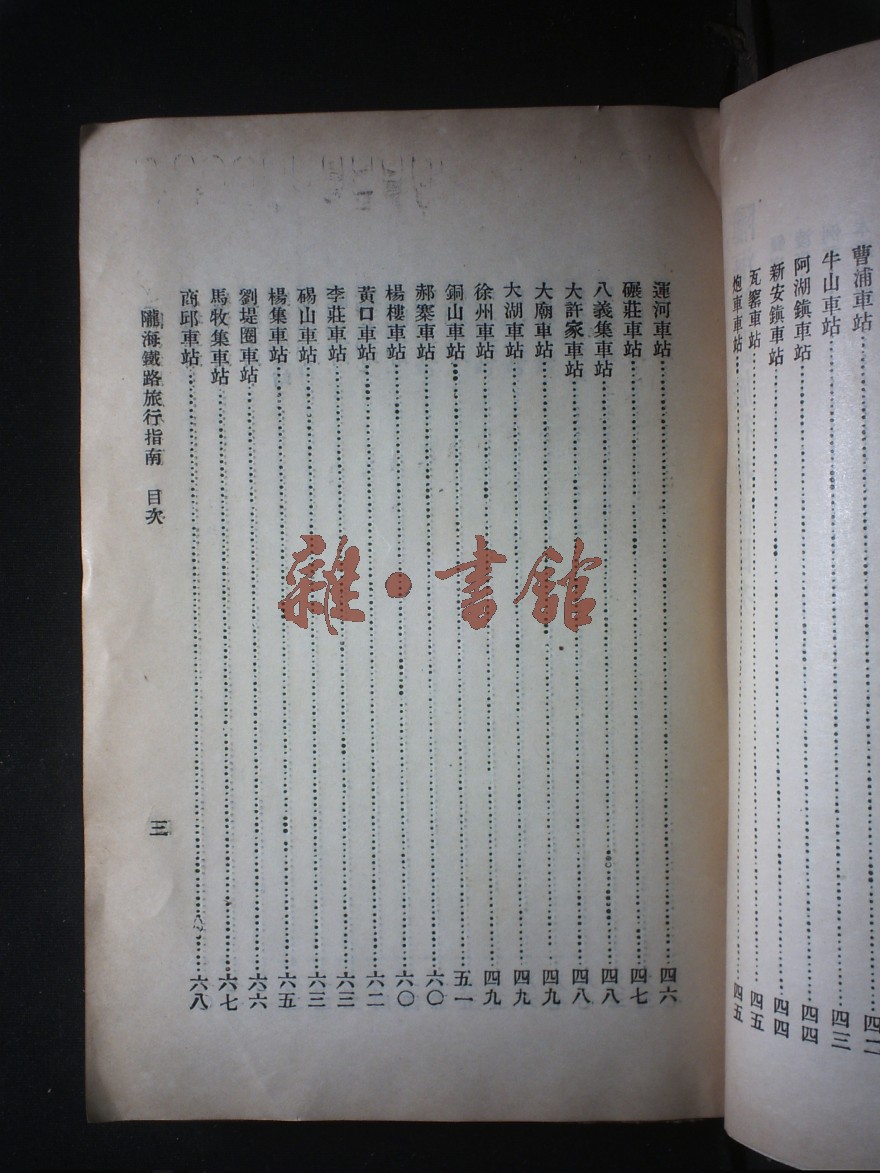 曹浦車站 四二
牛山車站 四三
阿湖鎮車站 四四
新安鎮車站 四四
瓦窰車站 四五
炮車車站 四五
運河車站 四六
碾莊車站 四七
八義集車站 四八
大許家車站 四八
大廟車站 四九
大湖車站 四九
徐州車站 四九
銅山車站 五一
郝寨車站 六〇
楊樓車站 六〇
黃口車站 六二
李莊車站 六三
碭山車站 六三
楊集車站 六五
劉堤圈車站 六六
馬牧集車站 六七
商邱車站 六八
隴海鐵路旅行指南 目次
三
雜·書館